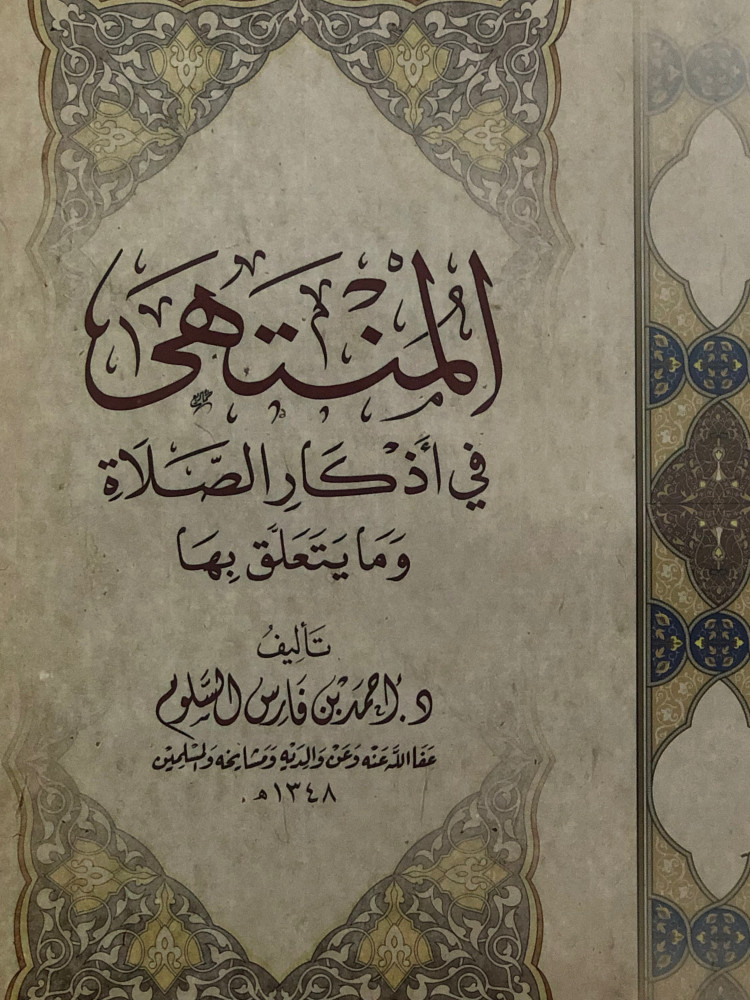 المُنْتَهَى
في أَذْكَارِ الصَّلَاةِ
وَمَا يَتَعَلَّق بِهَا
تَأليفُ
د. أحمَد بْن فَارِس السَّلوم
عَفَا اللَّه عَنْه وَعَنْ وَالِدَيْهِ وَمَشَايِخِه وَالمُسْلِمِيْنَ
١٣٤٨هـ.